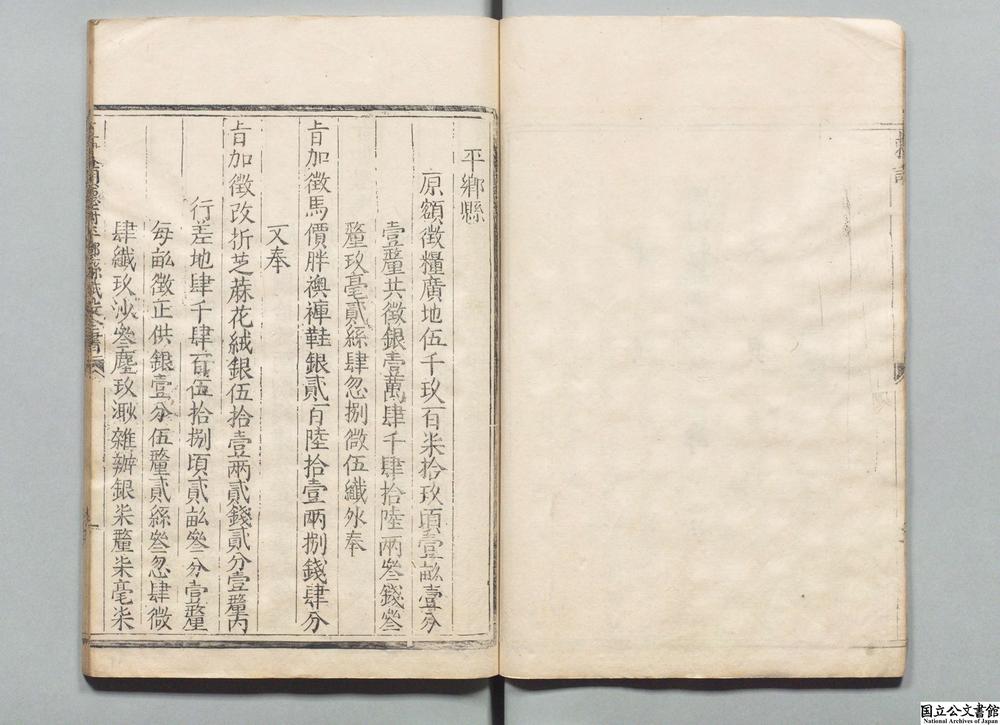 平鄉縣
原額徵糧廣地伍千玖百柒拾玖頃壹畝壹分
壹釐共徵銀壹萬肆千肆拾陸兩叄錢叄
釐玖毫貳絲肆忽捌微伍纖外奉
旨加徵馬價胖襖褲鞋銀貳百陸拾壹兩捌錢肆分
又奉
旨加徵改折芝蔴花絨銀伍拾壹兩貳錢貳分壹釐內
行差地肆千肆百伍拾捌頃貳畝叄分壹釐
每畝徵正供銀壹分伍釐貳絲叄忽肆微
肆纖玖沙叄塵玖渺雜辦銀柒釐柒毫柒
平鄉縣賦役全書
国立公文書館
National Archives of Japan